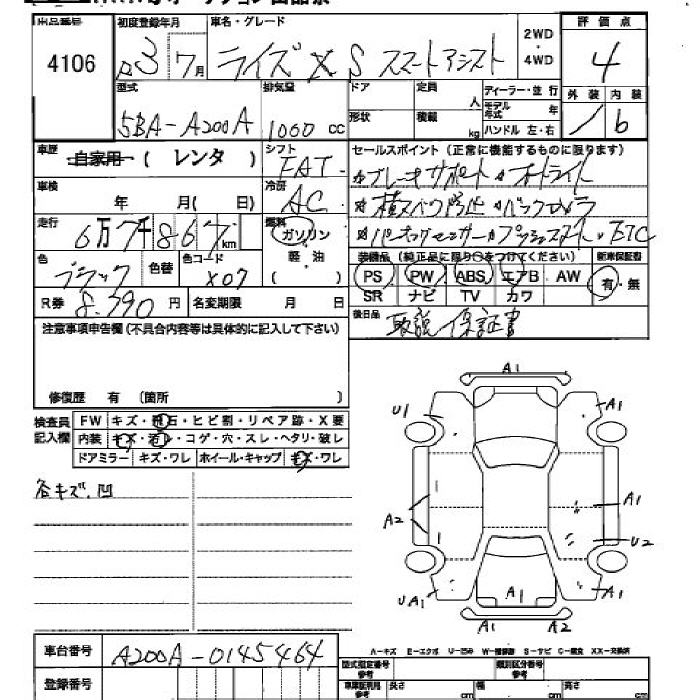 出品番号 初度登録年月 車名・グレード 2WD・4WD 評価点
4106 R3 7月 ライズ X S スマートアシスト 4
型式 排気量 ドア 定員 人 ディーラー・並行 外装 内装
5BA-A200A 1000 cc 形状 積載 kg モデル年式 年 ハンドル 左・右 b
車歴 自家用 ( レンタ ) シフト FAT セールスポイント(正常に機能するものに限ります)
☆ブレーキサポート ☆オートライト
車検 年 月( 日) 冷房 AC
☆横スベリ防止 ☆バックカメラ
走行 6万7千867km 燃料 ガソリン
☆パーキングセンサー ☆プッシュスタート ETC
色 ブラック 色替 色コード X07 軽・油 ( )
装備品(純正品に限り○をつけてください) 新車保証書
PS PW ABS エアB AW 有・無
SR ナビ TV カワ
R券 8,390 円 名変期限 月 日
後日品 取説 保証書
注意事項申告欄(不具合内容等は具体的に記入して下さい)
修復歴 有 (箇所 )
検査員記入欄 FW キズ・飛石・ヒビ割・リペア跡・X要
内装 キズ・汚レ・コゲ・穴・スレ・ヘタリ・破レ
ドアミラー キズ・ワレ ホイール・キャップ キズ・ワレ
各キズ.凹
A1
U1 A1
A2 A1
U2
UA1 A1 A1
A1
車台番号 A200A-0145464
A-キズ E-エクボ U-凹み W-補修跡 S-サビ C-腐食 XX-交換済
登録番号 型式指定番号 類別区分番号
車庫証明用参考 長さ cm 幅 cm 高さ cm